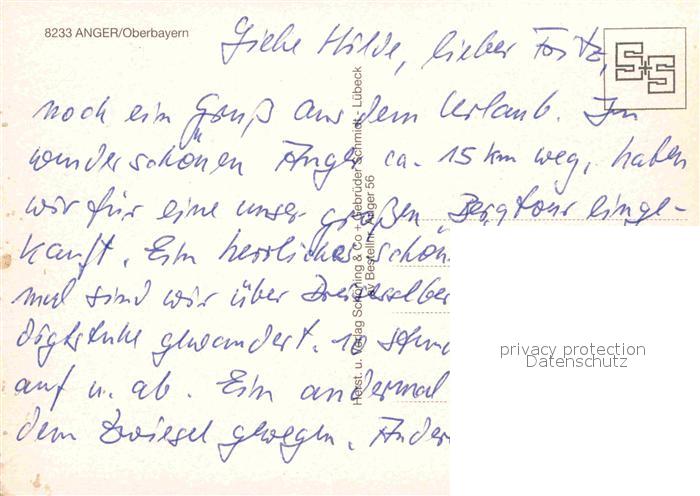 8233 ANGER/Oberbayern
Liebe Hilde, lieber Fritz,
S+S
noch ein Gruß aus dem Urlaub. Im
wunderschönen Anger ca. 15 km weg, haben
wir für eine unser großen Bergtour einge-
kauft. Ein herrliches schön.
mal sind wir über
gewandert. 10
auf u. ab. Ein andermal
dem Zwiesel gewesen. Ander
Herst. u. Verlag Schöning & Co + Gebrüder Schmidt - Lübeck
Bestellnr. Anger 56
privacy protection
Datenschutz